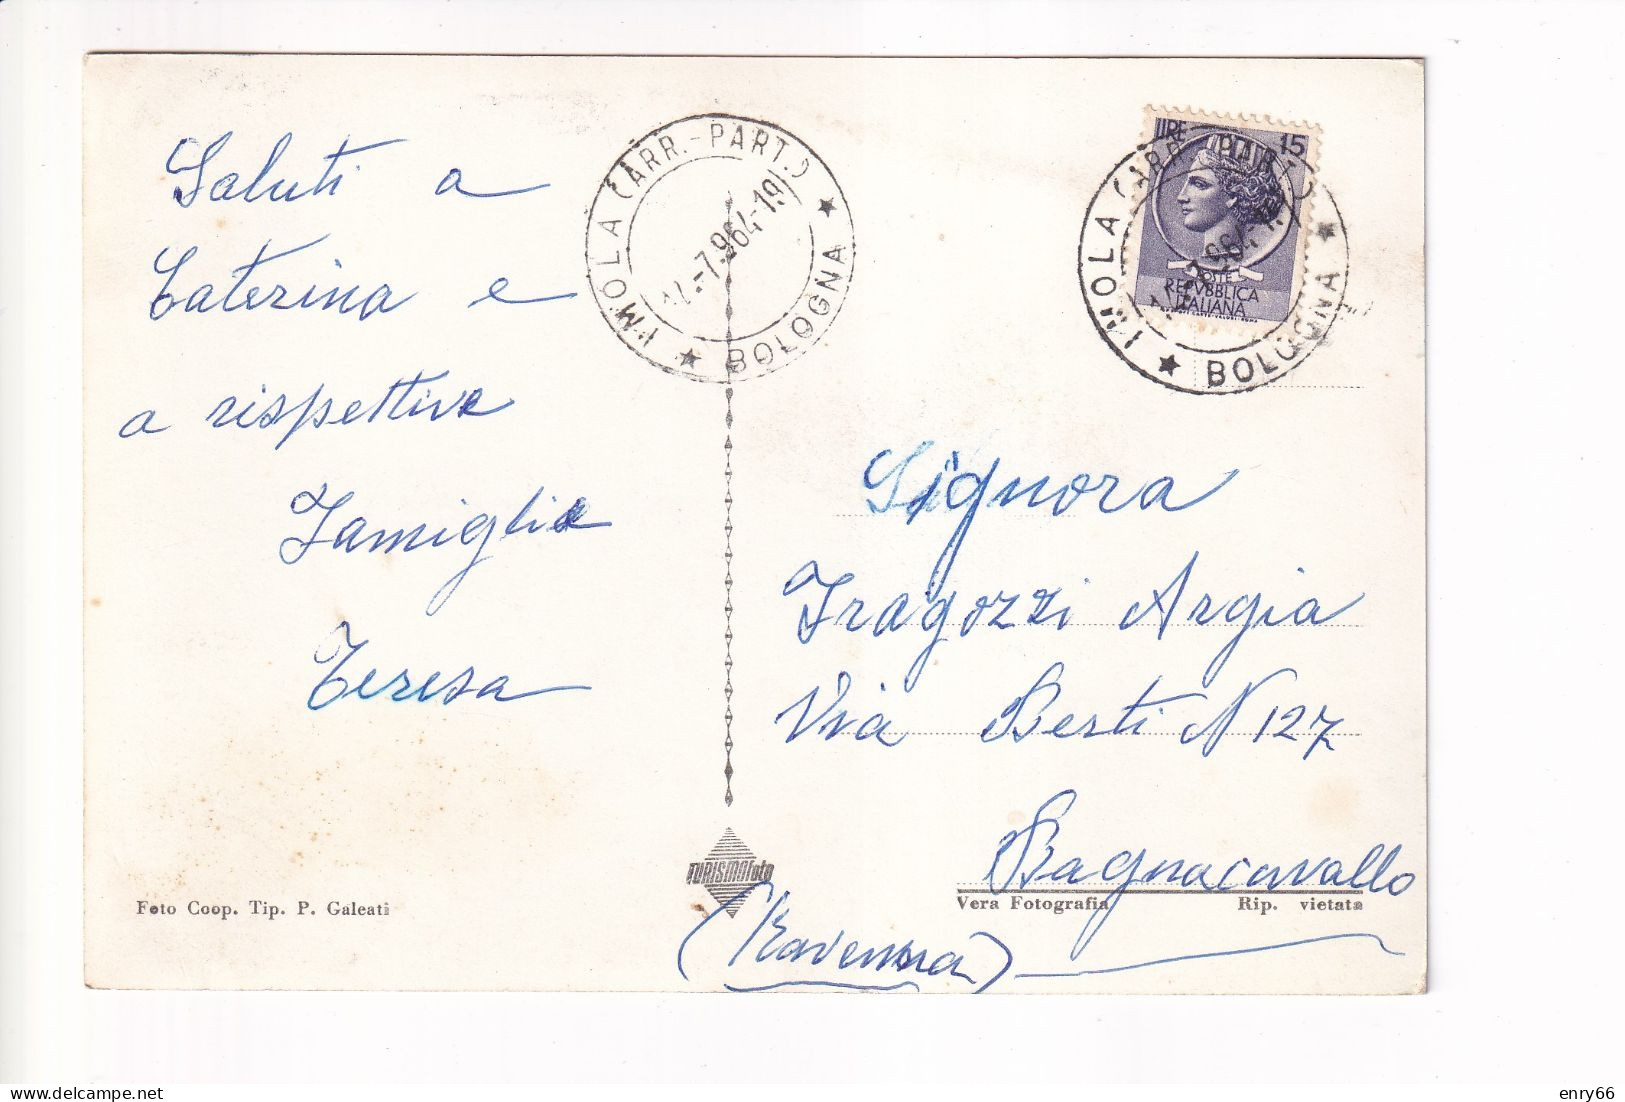 Saluti a
Caterina e
a rispettive
Famiglie
Teresa
Foto Coop. Tip. P. Galeati
IMOLA CARR.-PART.
-7.964-19
★ BOLOGNA ★
TURISMOfoto
LIRE 15
POSTE
REPVBBLICA
ITALIANA
IMOLA CARR.-PART.
★ BOLOGNA ★
Signora
Fragozzi Argia
Via Berti N 127
Bagnacavallo
Vera Fotografia Rip. vietata
(Ravenna)
enry66